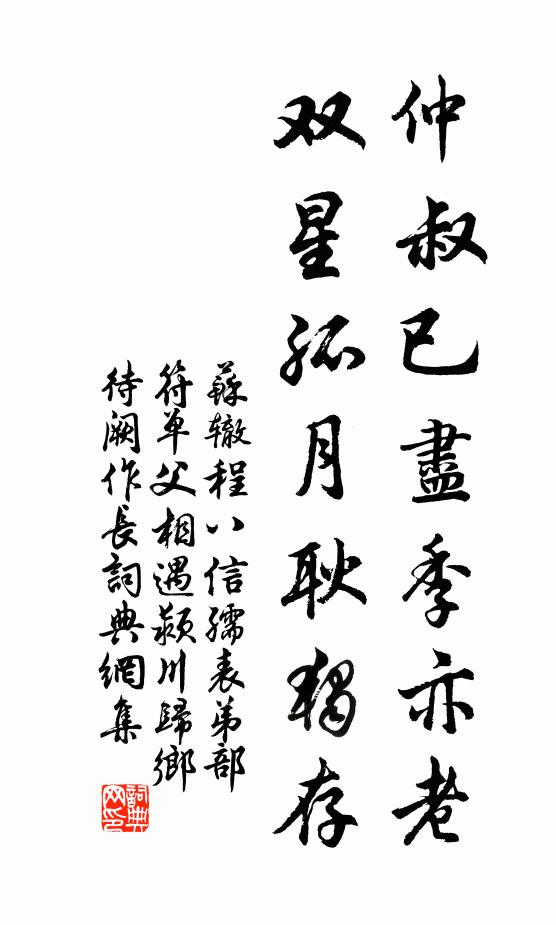 仲叔已盡季亦老
双星孤月耿獨存
蘇辙程八信孺表弟部
符单父相遇颍川歸鄉
待阙作長詞典網集
詞典网印